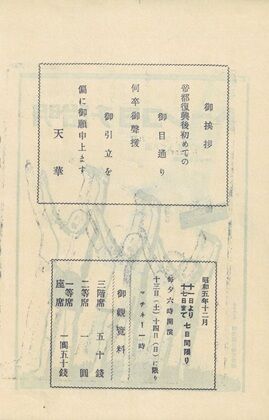 御挨拶
帝都復興後初めての
御目通り
何卒御聲援
御引立を
偏に御願申上ます
天華
昭和五年十二月
十一日より
十七日まで
七日間限り
毎夕六時開演
十三日(土)十四日(日)に限り
マチネー一時
御觀覽料
三階席 五十錢
二等席 一圓
一等席
座席
一圓五十錢